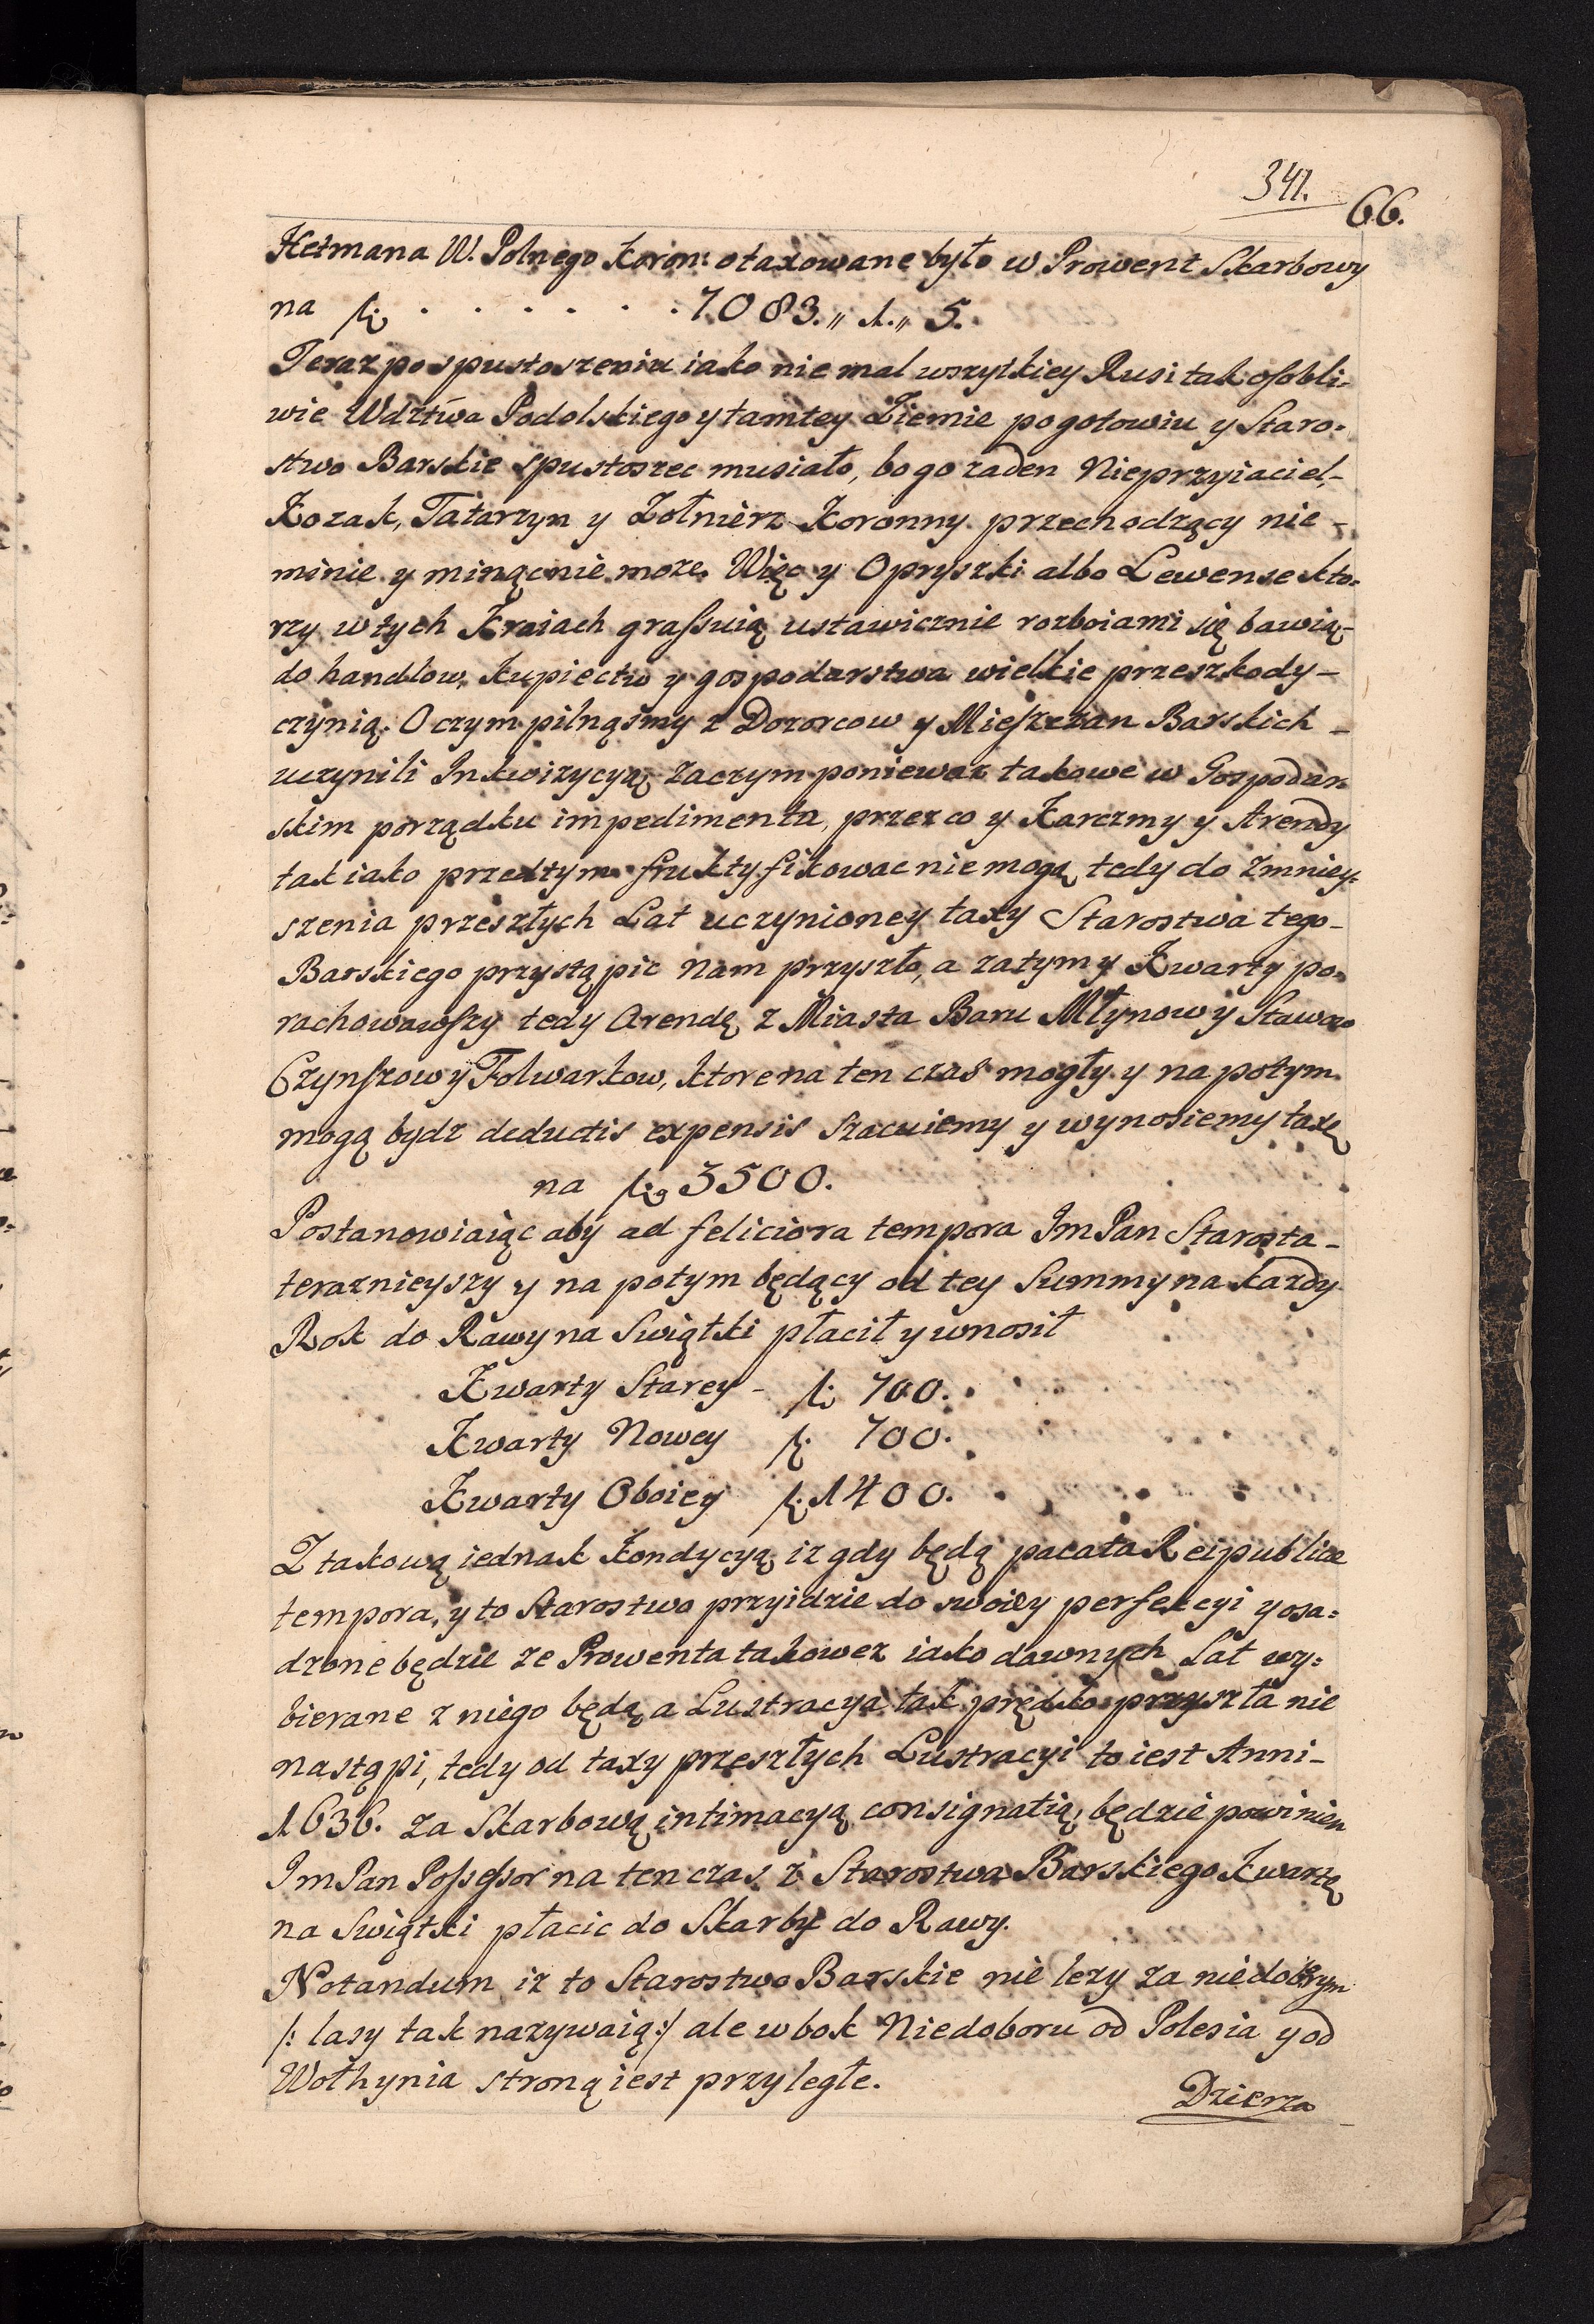 341.
66.
Hetmana W. Polnego Koron: otaxowane było w Prowent Skarbowy
na fl: . . . . . . . 7083.,, 1.,, 5.
Teraz po spustoszeniu iako nie mal wszytkiey Rusi tak osobli-
wie Wdztwa Podolskiego y tamtey Ziemie pogotowiu y Staro-
stwo Barskie spustoszec musiało, bo go zaden Nieprzyiaciel,-
Kozak, Tatarzyn y Zołnierz Koronny przechodzący nie -
minie y minąc nie moze. Więc y Opryszki albo Lewense kto-
rzy w tych Kraiach grassuią ustawicznie rozboiami się bawią-
do handlow, kupiectw y gospodarstwa wielkie przeszkody -
czynią. O czym pilnąsmy z Dozorcow y Mieszczan Barskich -
uczynili Inkwizycyą, zaczym poniewaz takowe w Gospodar-
skim porządku impedimenta, przez co y Karczmy y Arendy
tak iako przedtym fruktyfikowac nie mogą, tedy do zmniey-
szenia przeszłych Lat uczynioney taxy Starostwa tego-
Barskiego przystąpic nam przyszło, a zatym y Kwarty po-
rachowawszy tedy Arendę z Miasta Baru Młynow y Stawow
Czynszow y Folwarkow, ktore na ten czas mogły y na potym
mogą bydz deductis expensis szacuiemy y wynosiemy taxę
na fl: 3500.
Postanowiaiąc aby ad feliciora tempora Im Pan Starosta -
teraznieyszy y na potym będący od tey Summy na kazdy
Rok do Rawy na Swiątki płacił y wnosił
Kwarty Starey - fl: 700.
Kwarty Nowey fl: 700.
Kwarty Oboiey fl: 1400.
Z takową iednak Kondycyą, iz gdy będą pacata Reipublicæ
tempora, y to Starostwo przyidzie do swoiey perfekcyi y osa-
dzone będzie ze Prowenta takowez iako dawnych Lat wy-
bierane z niego będą, a Lustracya tak prędko przyszła nie
nastąpi, tedy od taxy przeszłych Lustracyi to iest Anni -
1636. za Skarbową intimacyą consignatią, będzie powinien
Im Pan Possessor na ten czas z Starostwa Barskiego Kwartę
na Swiątki płacic do Skarby do Rawy.
Notandum iz to Starostwo Barskie nie lezy za niedobrym
/: lasy tak nazywaią:/ ale w bok Niedoboru od Polesia y od
Wołhynia stroną iest przyległe.
Dzierza